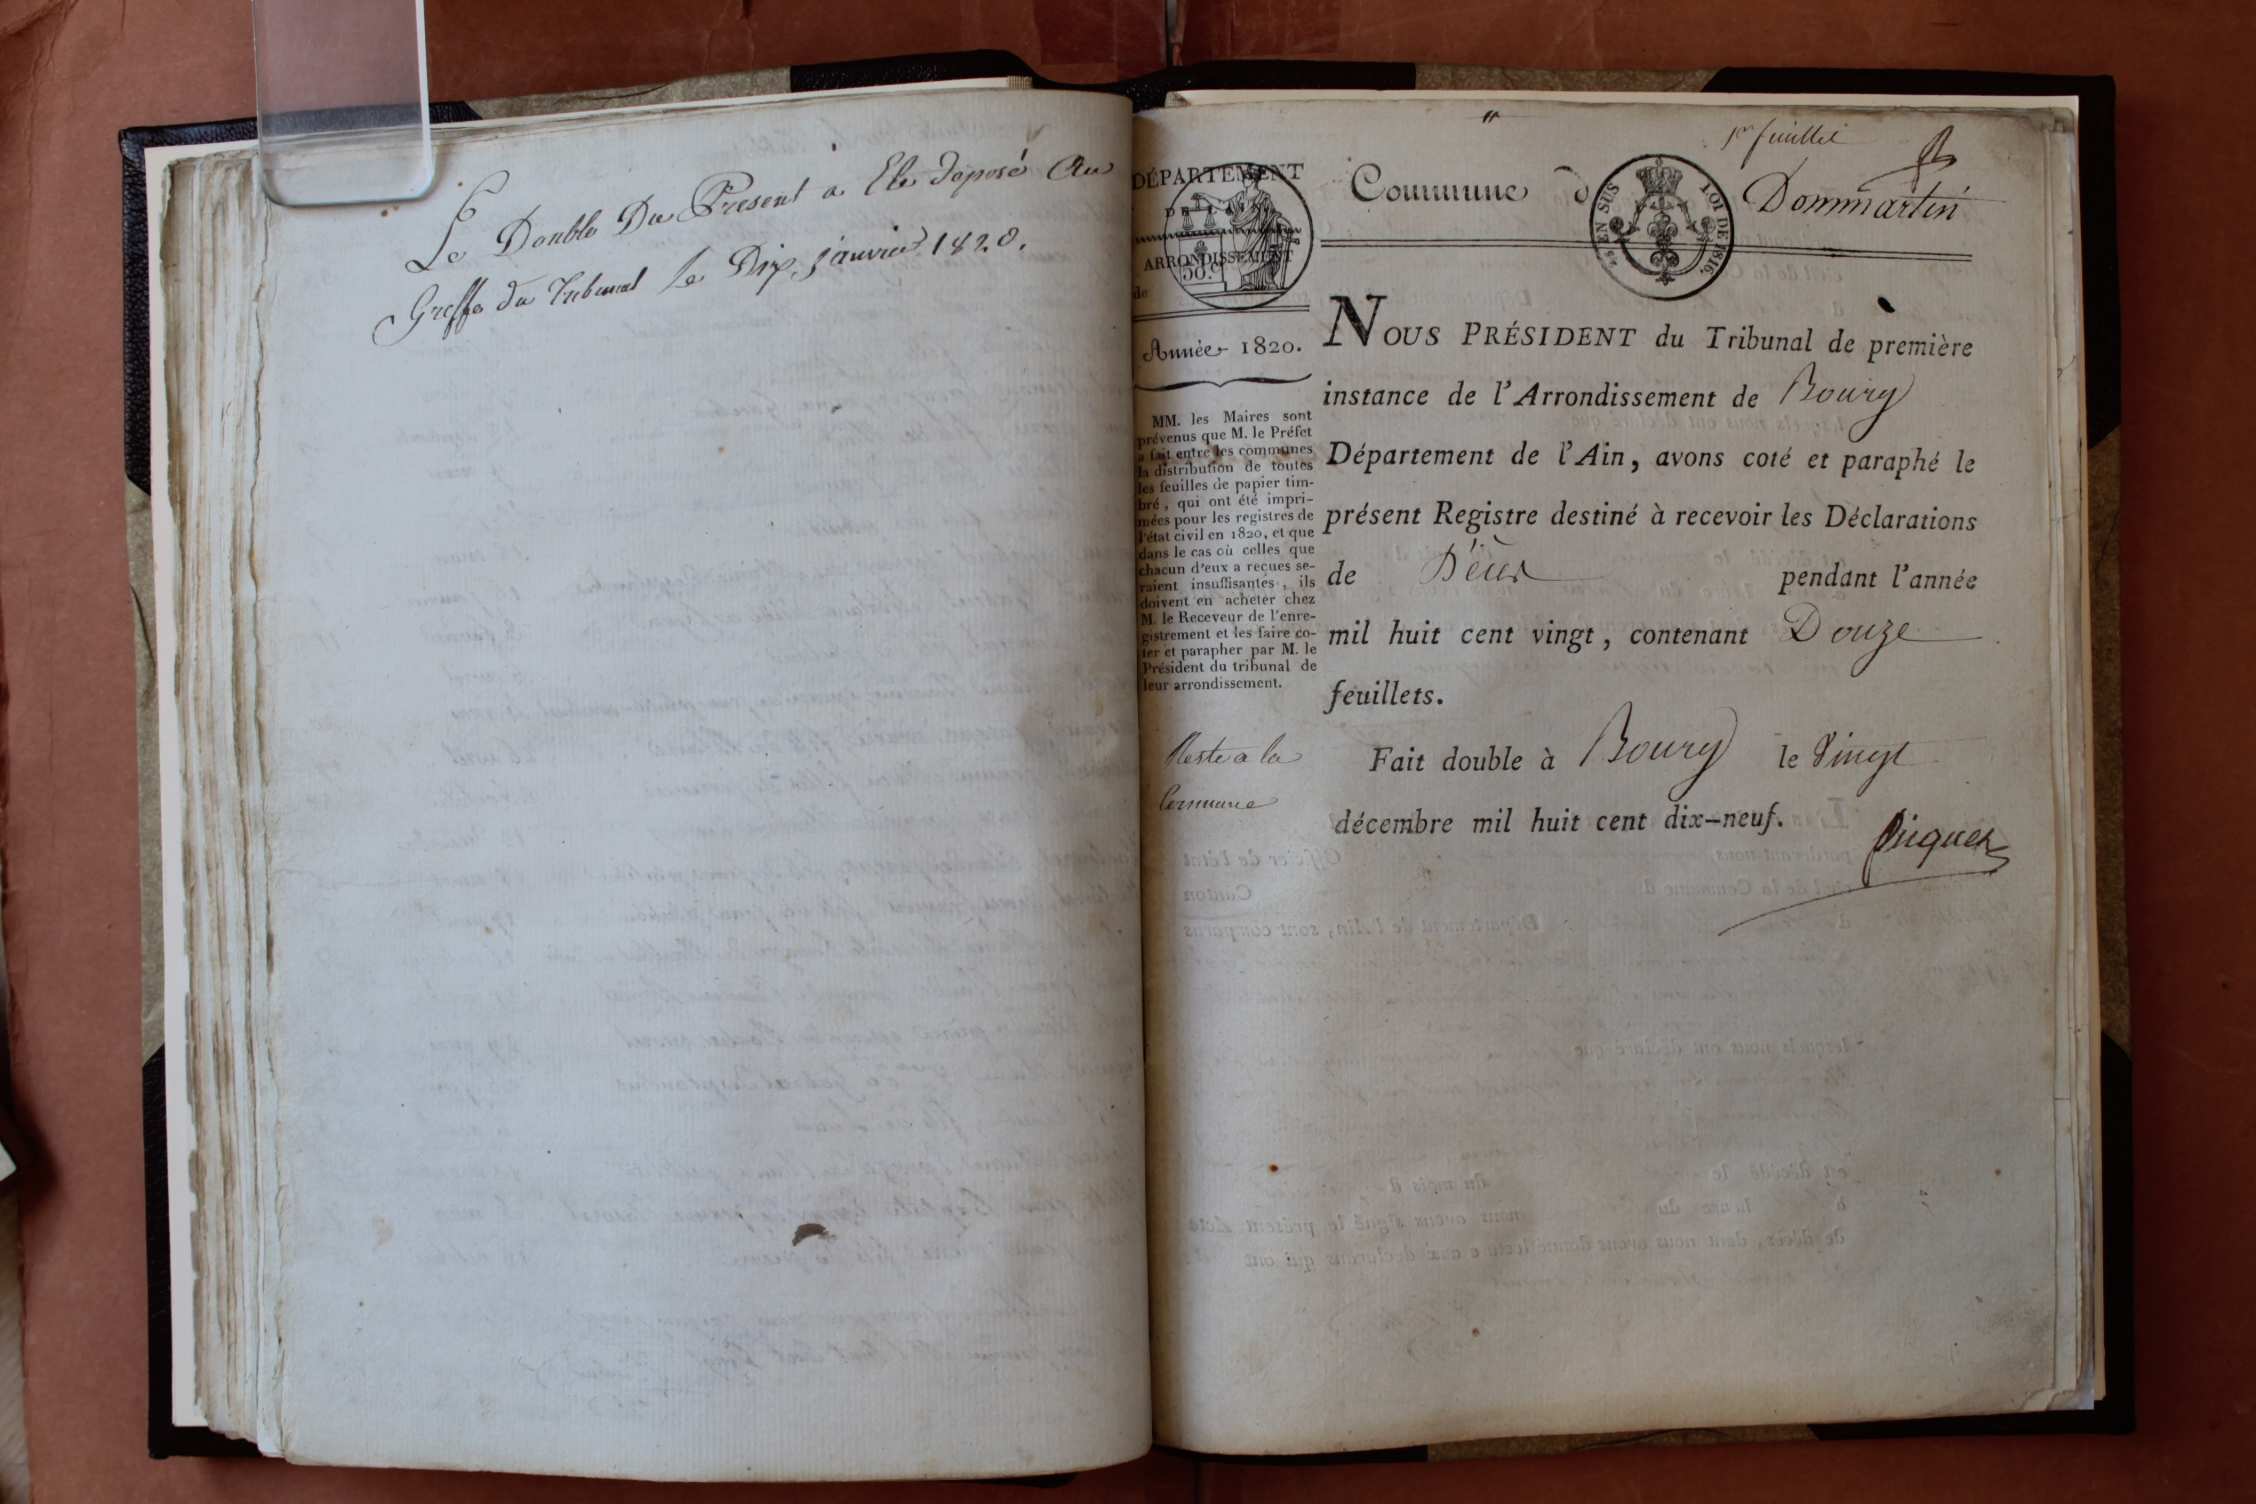 Le Double Du Present a Ete déposé Au
Greffe du Tribunal Le Dix janvier 1820.
1er feuillet
DÉPARTEMENT
DE L'AIN
ARRONDISSEMENT
50.C
de
Commune d
25 EN SUS
LOI DE 1816.
Dommartin
Année 1820.
MM. les Maires sont
prévenus que M. le Préfet
a fait entre les communes
la distribution de toutes
les feuilles de papier tim-
bré, qui ont été impri-
mées pour les registres de
l'état civil en 1820, et que
dans le cas où celles que
chacun d'eux a reçues se-
raient insuffisantes, ils
doivent en acheter chez
M. le Receveur de l'enre-
gistrement et les faire co-
ter et parapher par M. le
Président du tribunal de
leur arrondissement.
Reste a la
Commune
NOUS PRÉSIDENT du Tribunal de première
instance de l'Arrondissement de Bourg
Département de l'Ain, avons coté et paraphé le
présent Registre destiné à recevoir les Déclarations
de Décès pendant l'année
mil huit cent vingt, contenant Douze
feuillets.
Fait double à Bourg le Vingt
décembre mil huit cent dix-neuf.